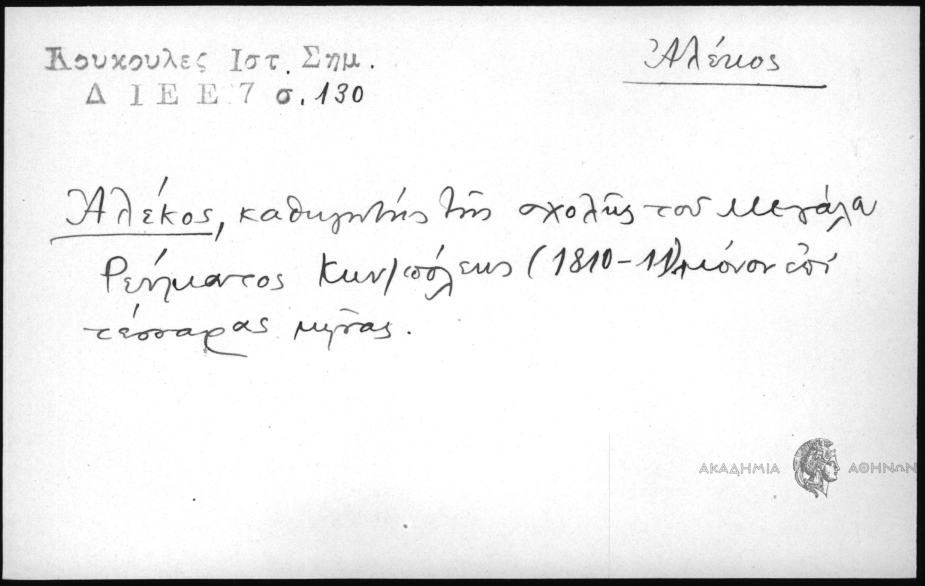 Κουκουλες Ιστ. Σημ.
Δ Ι Ε Ε 7 σ. 130
Ἀλέκος
Ἀλέκος, καθηγητής τῆς σχολῆς τοῦ Μεγάλου
Ρεύματος Κων/πόλεως (1810-11) μόνον ἐπί
τέσσαρας μῆνας.
ΑΚΑΔΗΜΙΑ ΑΘΗΝΩΝ